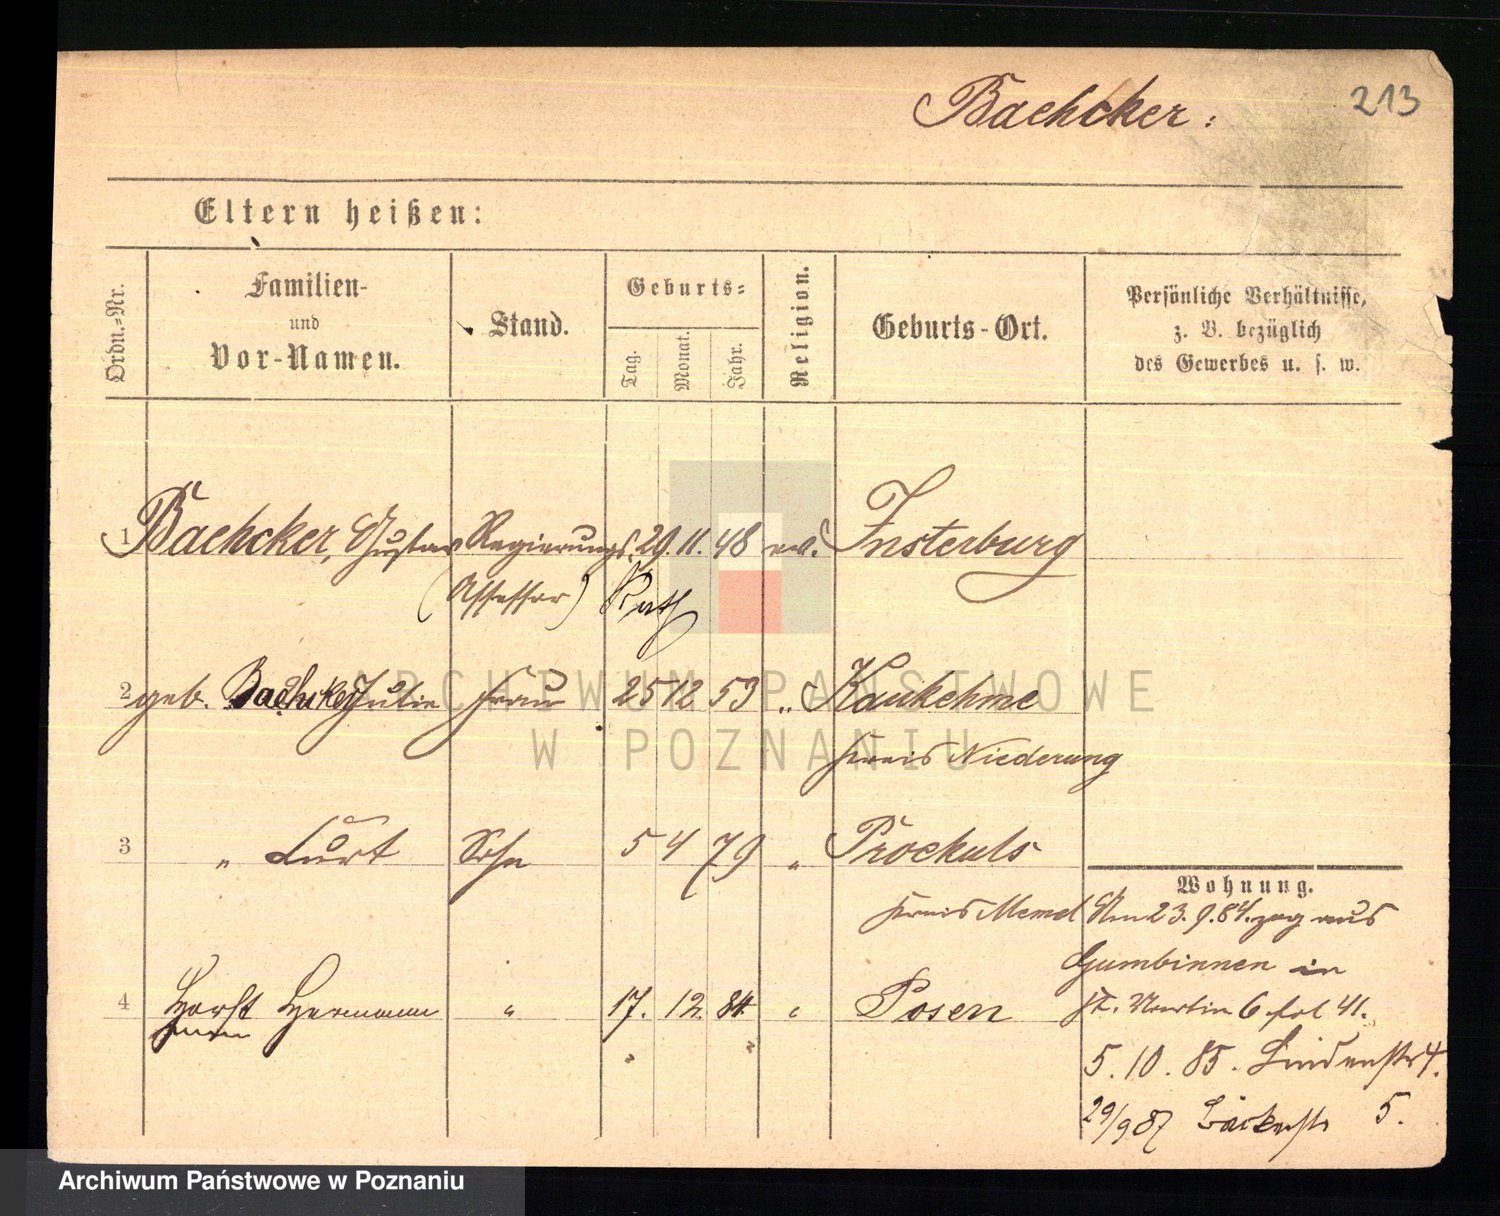 Baehcker:
213
Eltern heißen:
Ordn.-Nr.
Familien-
und
Vor-Namen.
Stand.
Geburts-
Tag.
Monat.
Jahr.
Religion.
Geburts-Ort.
Persönliche Verhältnisse,
z. B. bezüglich
des Gewerbes u. s. w.
1 Baehcker, Gustav Regierungs. 29. 11. 48 ev. Insterburg
(Assessor) Rath
2 geb. Baehcker Julie Frau 25 12 53 " Kaukehme
Kreis Niederung
3 " Curt Sohn 5 4 79 " Proekuls
Kreis Memel
Wohnung.
Am 23.9.84. zog aus
Gumbinnen in
St. Martin 6 fol 41.
4 Horst Hermann " 17. 12. 84. " Posen
5. 10. 85. Lindenstr 4.
29/9 87 Bäckerstr 5.
ARCHIWUM PAŃSTWOWE
W POZNANIU
Archiwum Państwowe w Poznaniu